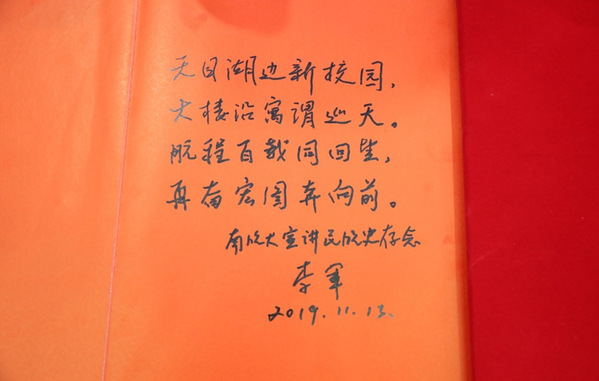 天目湖边新校园,
大楼沿寓谓巡天。
航程百载同回望,
再奋宏图奔向前。
南航大宣讲民航史存念
李军
2019.11.13.